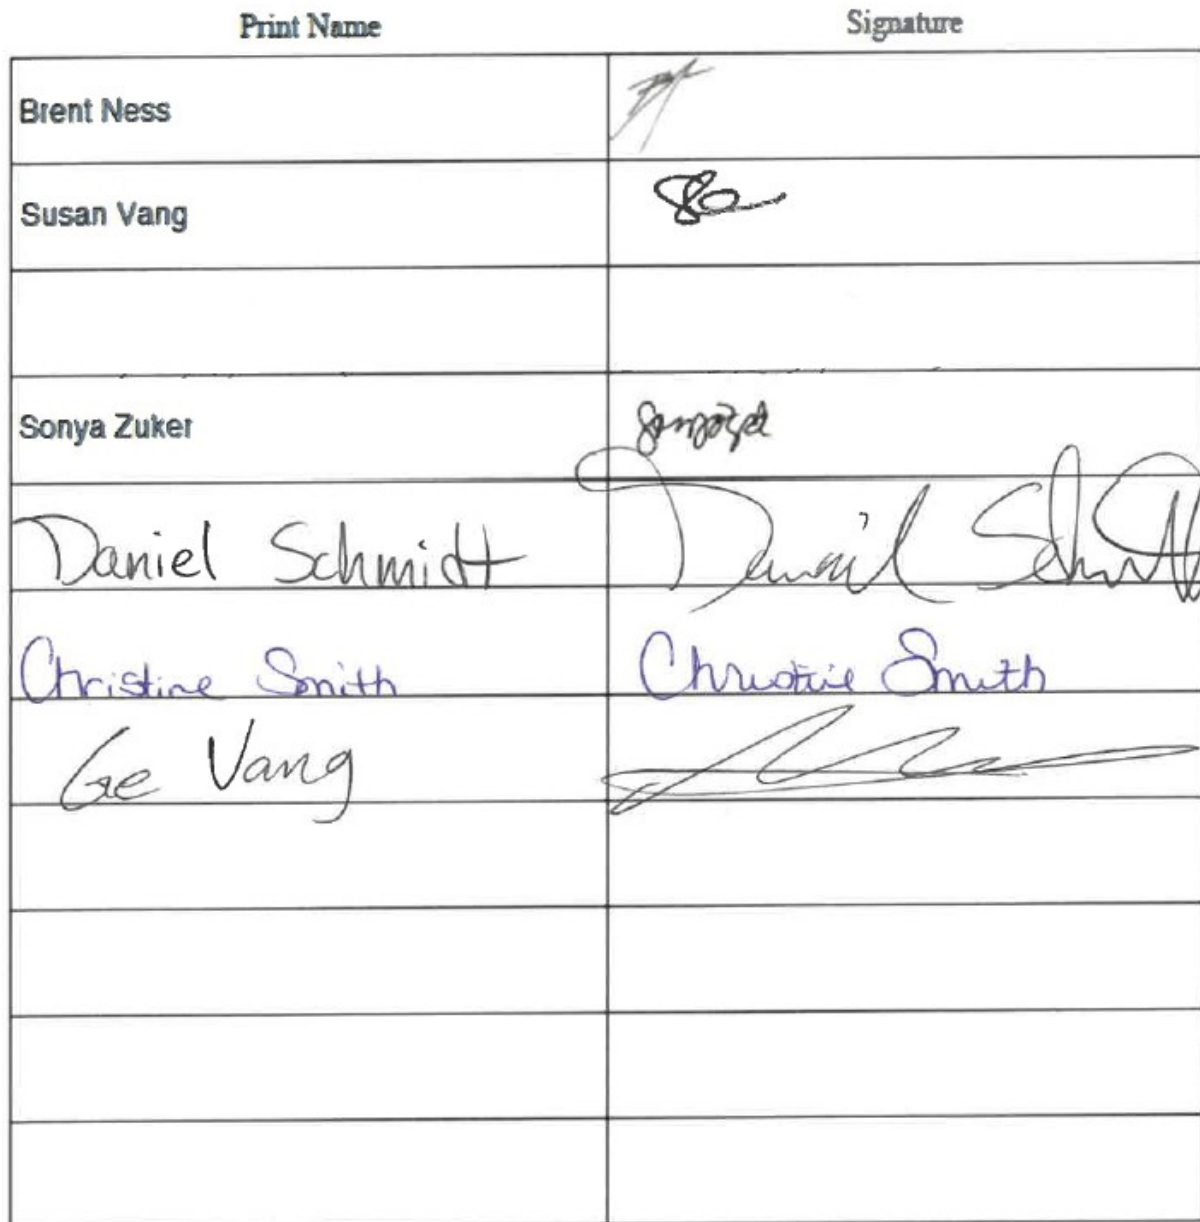 Print Name Signature
Brent Ness
Susan Vang
Sonya Zuker
Daniel Schmidt Daniel Schmidt
Christine Smith Christine Smith
Ge Vang